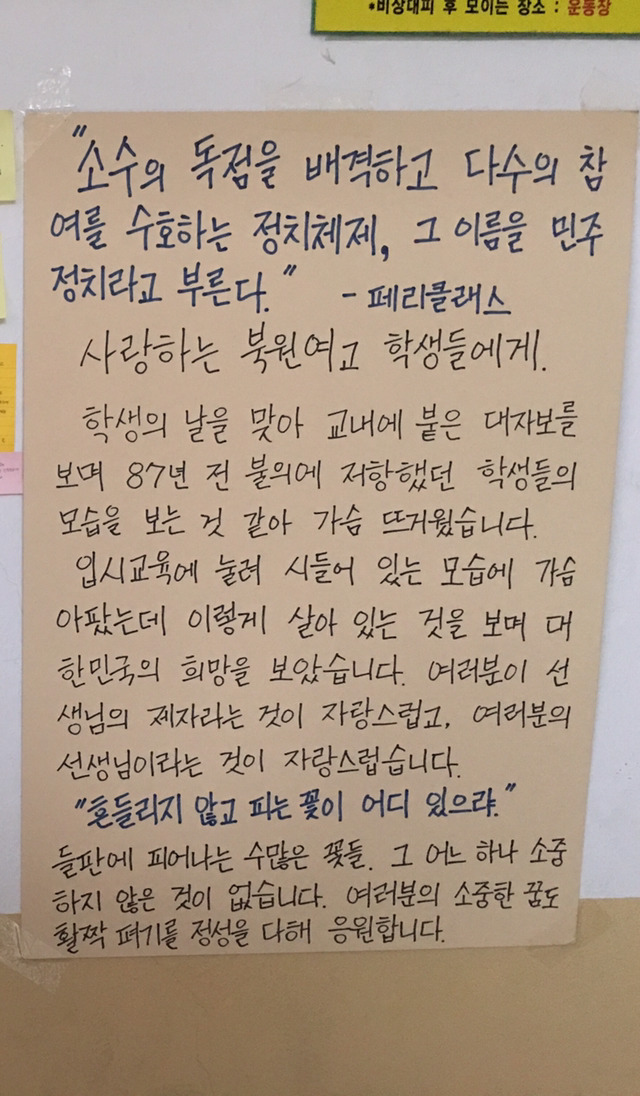 *비상대피 후 모이는 장소 : 운동장
"소수의 독점을 배격하고 다수의 참
여를 수호하는 정치체제, 그 이름을 민주
정치라고 부른다." - 페리클래스
사랑하는 북원여고 학생들에게.
학생의 날을 맞아 교내에 붙은 대자보를
보며 87년 전 불의에 저항했던 학생들의
모습을 보는 것 같아 가슴 뜨거웠습니다.
입시교육에 눌려 시들어 있는 모습에 가슴
아팠는데 이렇게 살아 있는 것을 보며 대
한민국의 희망을 보았습니다. 여러분이 선
생님의 제자라는 것이 자랑스럽고, 여러분의
선생님이라는 것이 자랑스럽습니다.
"흔들리지 않고 피는 꽃이 어디 있으랴."
들판에 피어나는 수많은 꽃들. 그 어느 하나 소중
하지 않은 것이 없습니다. 여러분의 소중한 꿈도
활짝 펴기를 정성을 다해 응원합니다.